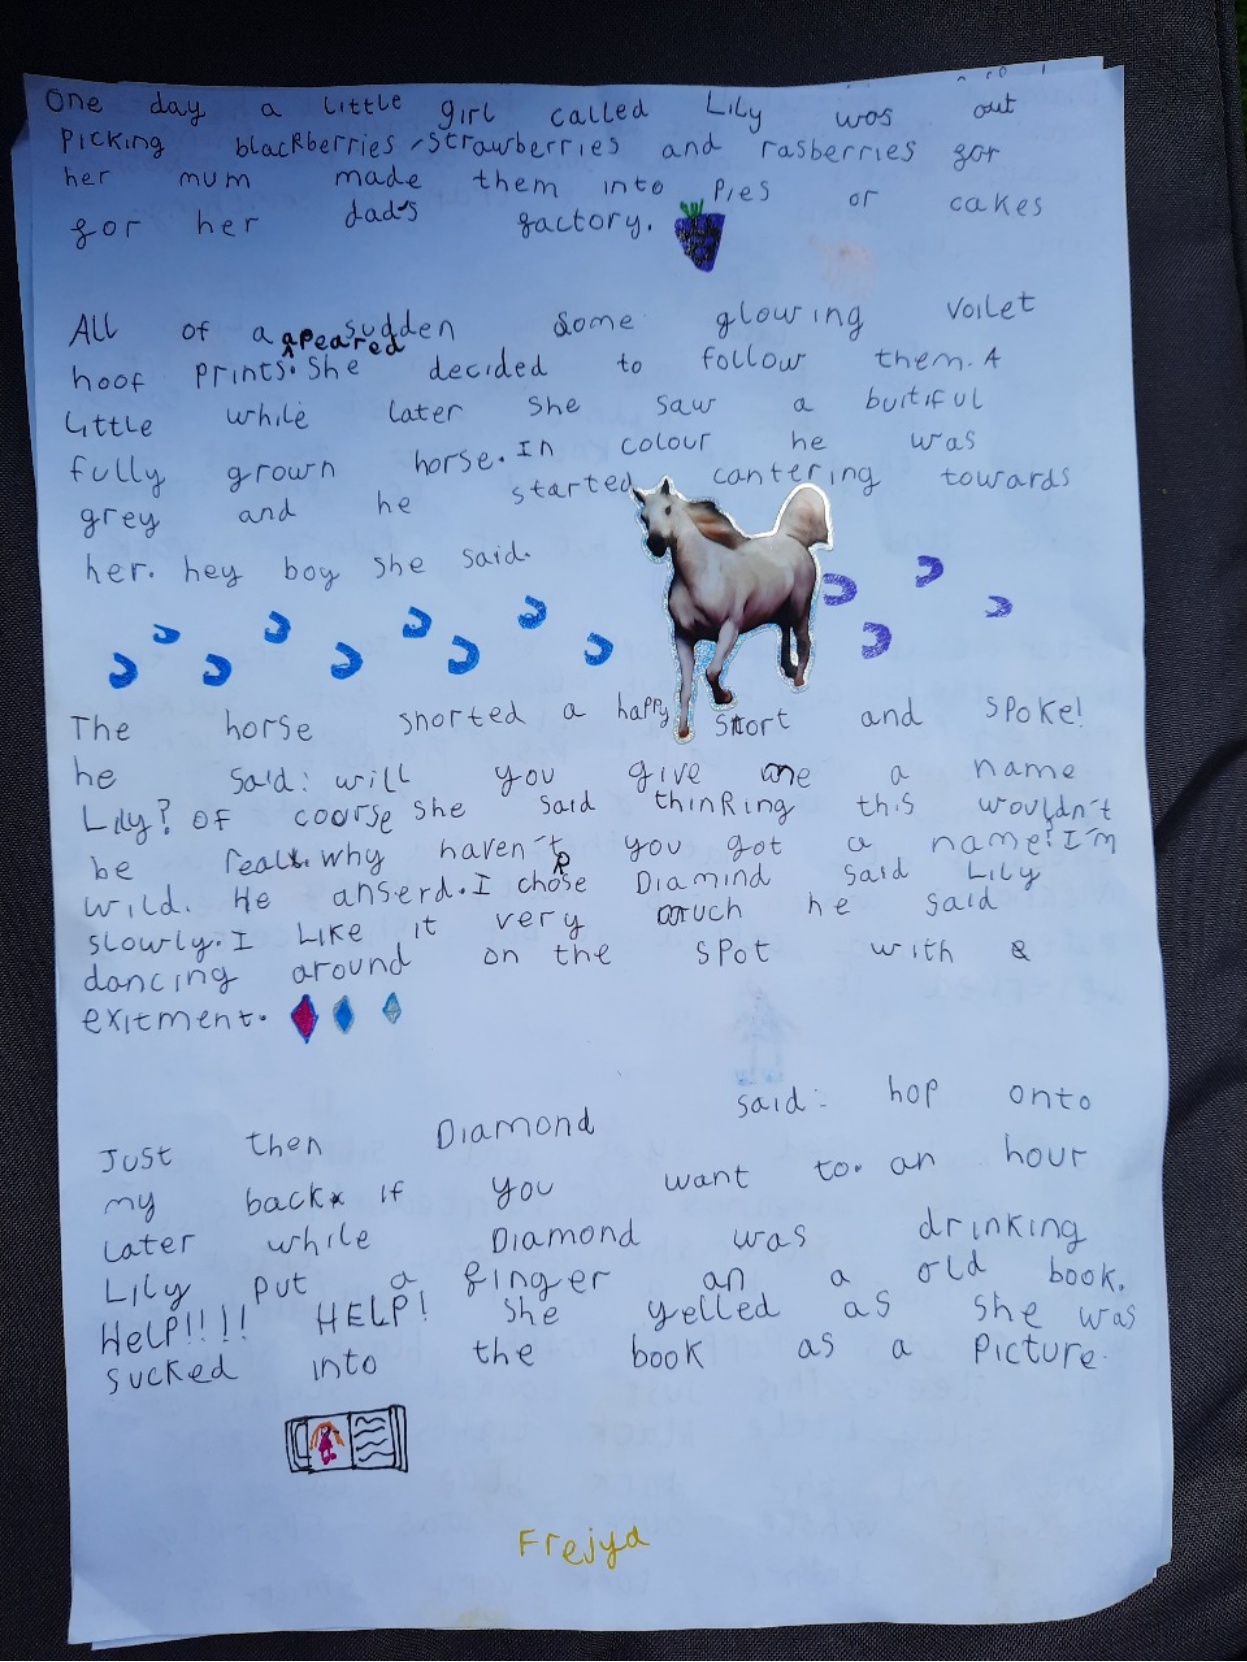 One day a little girl called Lily was out
Picking blackberries, strawberries and rasberries for
her mum made them into Pies or cakes
for her dad's factory.
All of a sudden some glowing voilet
apeared
hoof prints. She decided to follow them. A
little while later she saw a buitiful
fully grown horse. In colour he was
grey and he started cantering towards
her. hey boy she said.
The horse snorted a happy snort and spoke!
he said: will you give me a name
Lily? Of course she said thinking this wouldn't
be real. why haven't you got a name? I'm
wild. He anserd. I chose Diamind said Lily
slowly. I like it very much he said
dancing around on the spot with
exitment.
Just then Diamond said: hop onto
my back if you want to. an hour
later while Diamond was drinking
Lily put a finger an a old book.
Help!!!! HELP! she yelled as she was
sucked into the book as a picture.
Frejya